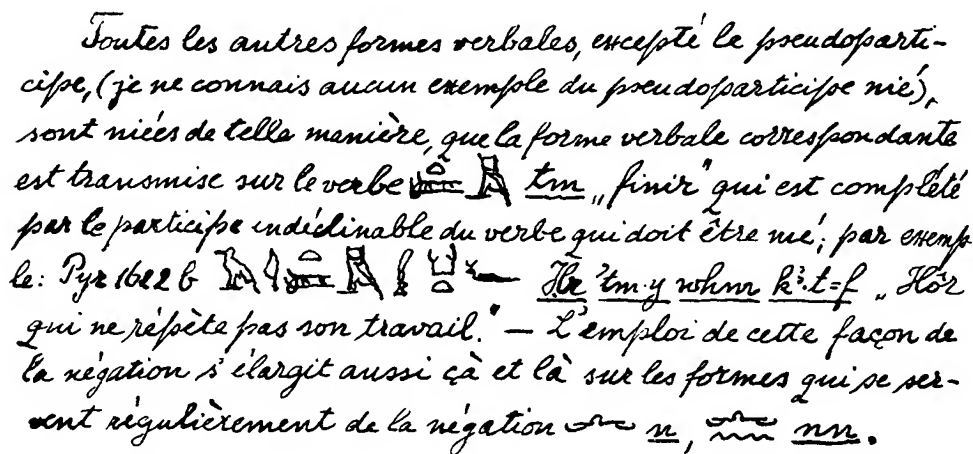 Toutes les autres formes verbales, excepté le pseudoparti-
cipe, (je ne connais aucun exemple du pseudoparticipe nié),
sont niées de telle manière, que la forme verbale correspondante
est transmise sur le verbe tm „finir" qui est complété
par le participe indéclinable du verbe qui doit être nié; par exemp-
le: Pyr 1622 b Ḥr 'tm·y wḥm k³·t=f „Hôr
qui ne répète pas son travail." — L'emploi de cette façon de
la négation s'élargit aussi çà et là sur les formes qui se ser-
vent régulièrement de la négation n, nn.